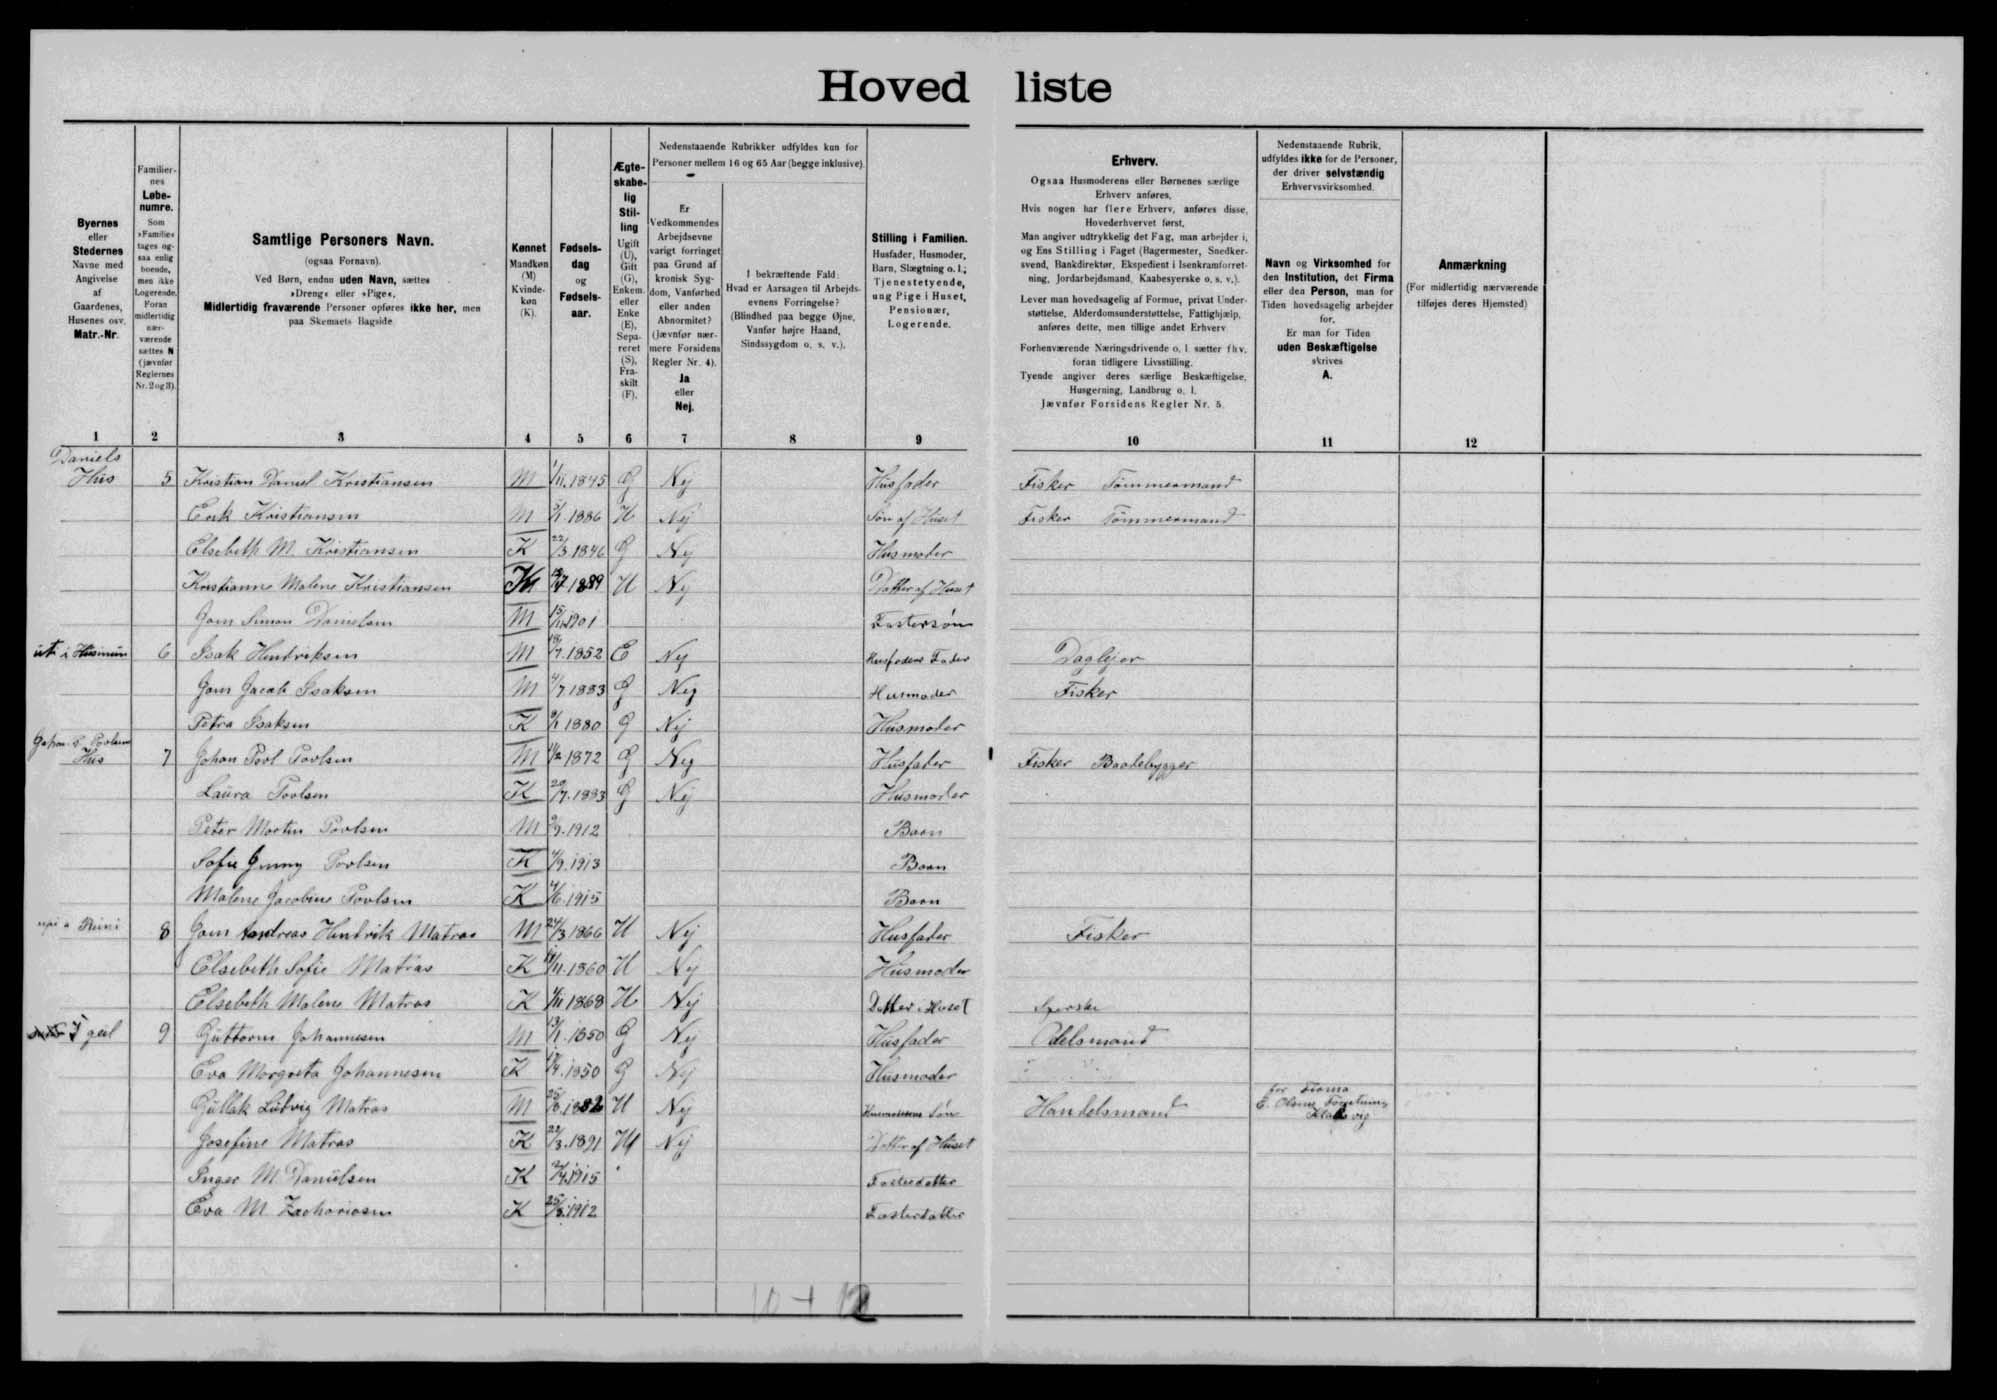 Hovedliste
Byernes eller Stedernes Navne med Angivelse af Gaardenes, Husenes osv. Matr.-Nr.
Familiernes Løbenumre. Som »Familie« tages ogsaa enlig boende, men ikke Logerende. Foran midlertidig nærværende sættes N (jævnfør Reglernes Nr. 2 og 3).
Samtlige Personers Navn. (ogsaa Fornavn). Ved Børn, endnu uden Navn, sættes »Dreng« eller »Pige«, Midlertidig fraværende Personer opføres ikke her, men paa Skemaets Bagside
Kønnet Mandkøn (M) Kvindekøn (K).
Fødselsdag og Fødselsaar.
Ægteskabelig Stilling Ugift (U), Gift (G), Enkem. eller Enke (E), Separeret (S), Fraskilt (F).
Nedenstaaende Rubrikker udfyldes kun for Personer mellem 16 og 65 Aar (begge inklusive).
Er Vedkommendes Arbejdsevne varigt forringet paa Grund af kronisk Sygdom, Vanførhed eller anden Abnormitet? (Jævnfør nærmere Forsidens Regler Nr. 4). Ja eller Nej.
I bekræftende Fald: Hvad er Aarsagen til Arbejdsevnens Forringelse? (Blindhed paa begge Øjne, Vanfør højre Haand, Sindssygdom o. s. v.).
Stilling i Familien. Husfader, Husmoder, Barn, Slægtning o. l.; Tjenestetyende, ung Pige i Huset, Pensionær, Logerende.
Erhverv.
Ogsaa Husmoderens eller Børnenes særlige Erhverv anføres,
Hvis nogen har flere Erhverv, anføres disse, Hovederhvervet først,
Man angiver udtrykkelig det Fag, man arbejder i, og Ens Stilling i Faget (Bagermester, Snedkersvend, Bankdirektør, Ekspedient i Isenkramforretning, Jordarbejdsmand, Kaabesyerske o. s. v.).
Lever man hovedsagelig af Formue, privat Understøttelse, Alderdomsunderstøttelse, Fattighjælp, anføres dette, men tillige andet Erhverv
Forhenværende Næringsdrivende o. l. sætter fhv. foran tidligere Livsstilling.
Tyende angiver deres særlige Beskæftigelse, Husgerning, Landbrug o. l.
Jævnfør Forsidens Regler Nr. 5.
Nedenstaaende Rubrik, udfyldes ikke for de Personer, der driver selvstændig Erhvervsvirksomhed.
Navn og Virksomhed for den Institution, det Firma eller den Person, man for Tiden hovedsagelig arbejder for,
Er man for Tiden uden Beskæftigelse skrives A.
Anmærkning (For midlertidig nærværende tilføjes deres Hjemsted)
1 2 3 4 5 6 7 8 9 10 11 12
Daniels
Hus 5 Kristian Daniel Kristiansen M 1/11.1845 G Nej Husfader Fisker Tömmermand
Erik Kristiansen M 1886 U Nej Søn af Huset Fisker Tömmermand
Elsebeth M. Kristiansen K 22/3.1846 G Nej Husmoder
Kristianne Malene Kristiansen K 1889 U Nej Datter af Huset
Jom Simon Danielsen M 1901 Fostersön
úti i Húsinum 6 Isak Hendriksen M 18/7.1852 E Nej Husfaders Fader Daglejer
Jom Jacob Isaksen M 4/7 1883 G Nej Husmoder Fisker
Petra Isaksen K 1880 G Nej Husmoder
Johan P. Povlsens
Hus 7 Johan Povl Povlsen M 1872 G Nej Husfader Fisker Baadebygger
Laura Povlsen K 20/7.1883 G Nej Husmoder
Peter Martin Povlsen M 1912 Barn
Sofie Jenny Povlsen K 1913 Barn
Malene Jacobine Povlsen K 1915 Barn
8 Jom Andreas Hendrik Matras M 24/3 1866 U Nej Husfader Fisker
Elsebeth Sofie Matras K 1860 U Nej Husmoder
Elsebeth Malene Matras K 1/11 1868 U Nej Datter i Huset Syerske
I geil 9 Guttorm Johannesen M 13/1.1850 G Nej Husfader Odelsmand
Eva Margreta Johannesen K 1850 G Nej Husmoder
for Firma
Gullak Ludvig Matras M 1882 U Nej Husmoderens Søn Handelsmand E. Olsens Forretning
Klaksvig
Josefine Matras K 22/3.1891 U Nej Datter af Huset
Inger M Danielsen K 1915 Fosterdatter
Eva M Zachariasen K 1912 Fosterdatter
10 + 12